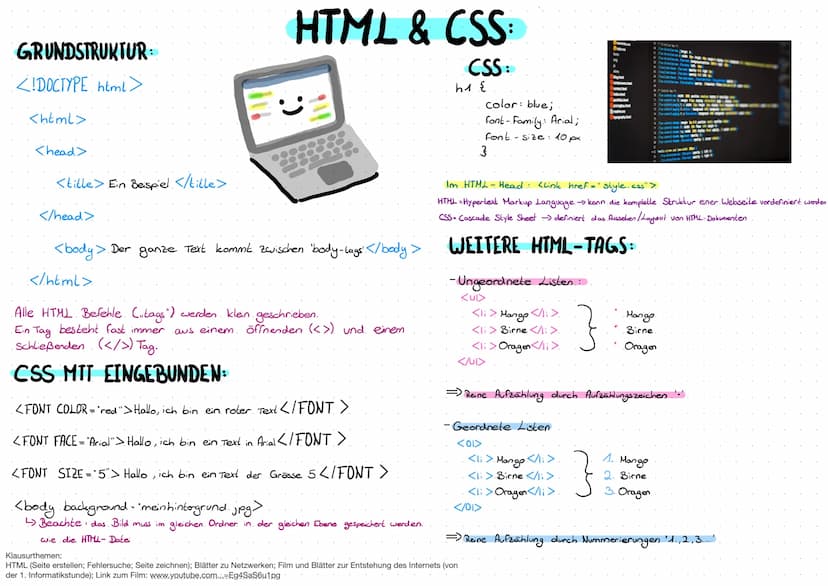 HTML & CSS:
GRUNDSTRUKTUR:
<!DOCTYPE html>
<html>
<head>
<title> Ein Beispiel </title>
</head>
<body> Der ganze Text kommt zwischen 'body-tags' </body>
</html>
Alle HTML Befehle („tags“) werden klein geschrieben.
Ein Tag besteht fast immer aus einem öffnenden (<>) und einem
schließenden (</>) Tag.
CSS MIT EINGEBUNDEN:
<FONT COLOR="red"> Hallo, ich bin ein roter Text </FONT>
<FONT FACE="Arial"> Hallo, ich bin ein Text in Arial </FONT>
<FONT SIZE="5"> Hallo, ich bin ein Text der Grösse 5 </FONT>
<body background="meinhintergrund.jpg>
↳ Beachte: das Bild muss im gleichen Ordner in der gleichen Ebene gespeichert werden
wie die HTML-Datei
Klausurthemen:
HTML (Seite erstellen; Fehlersuche; Seite zeichnen); Blätter zu Netzwerken; Film und Blätter zur Entstehung des Internets (von
der 1. Informatikstunde); Link zum Film: www.youtube.com...=Eg4SaS6u1pg
CSS:
h1 {
color: blue;
font-Family: Arial;
font-size: 10px
}
Im HTML-Head: <link href="style.css">
HTML = Hypertext Markup Language → kann die komplette Struktur einer Webseite vordefiniert werden
CSS = Cascade Style Sheet → definiert das Aussehen/Layout von HTML-Dokumenten
WEITERE HTML-TAGS:
- Ungeordnete Listen:
<ul>
<li> Mango </li> • Mango
<li> Birne </li> • Birne
<li> Oragen </li> • Oragen
</ul>
⇒ Reine Aufzählung durch Aufzählungszeichen '•'
- Geordnete Listen
<ol>
<li> Mango </li> 1. Mango
<li> Birne </li> 2. Birne
<li> Oragen </li> 3. Oragen
</ol>
⇒ Reine Aufzählung durch Nummerierungen '1.,2.,3...'